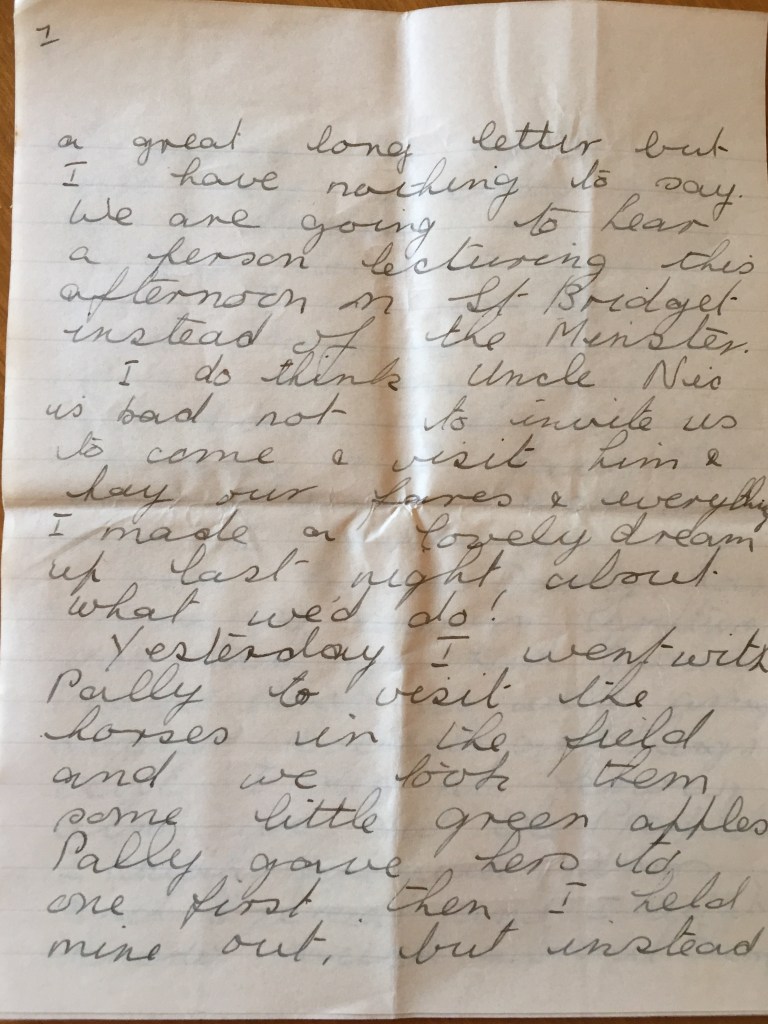 I
a great long letter but
I have nothing to say.
We are going to hear
a person lecturing this
afternoon in St Bridget
instead of the Minster.
I do think Uncle Nic
is bad not to invite us
to come & visit him &
pay our fares & everything
I made a lovely dream
up last night about
what we'd do!
Yesterday I went with
Pally to visit the
horses in the field
and we took them
some little green apples
Pally gave hers to
one first then I held
mine out, but instead